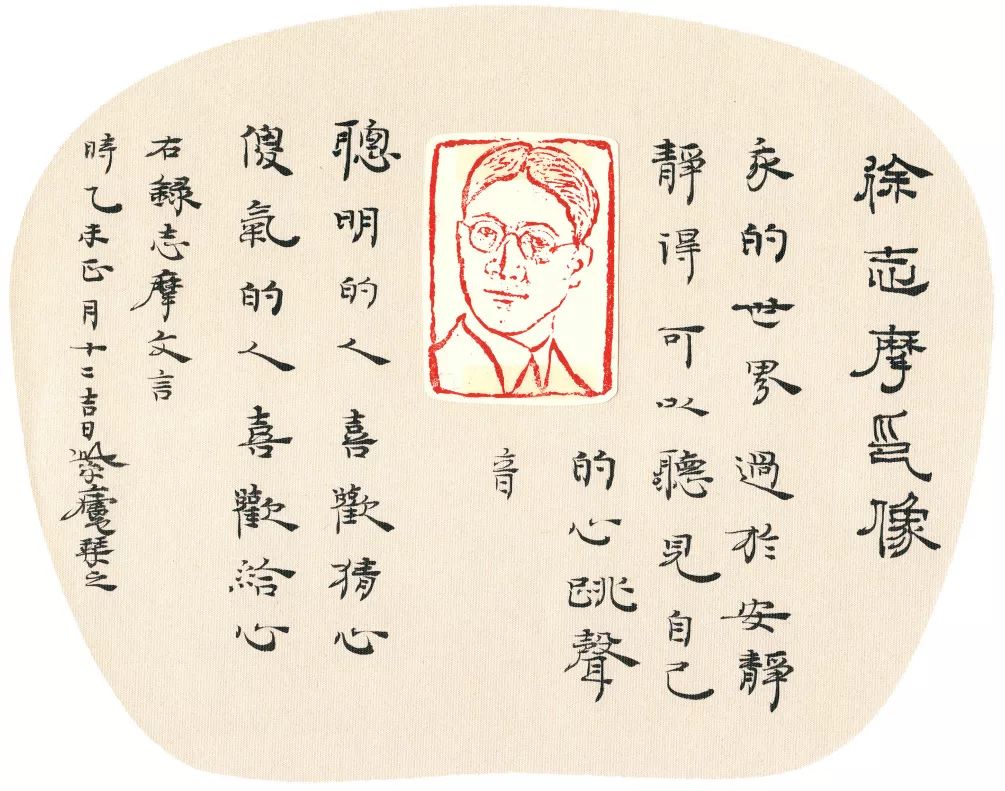 徐志摩肖像
我的世界過於安靜
靜得可以聽見自己
的心跳聲
音
聰明的人喜歡猜心
傻氣的人喜歡給心
右錄志摩文言
時乙未正月十二吉日